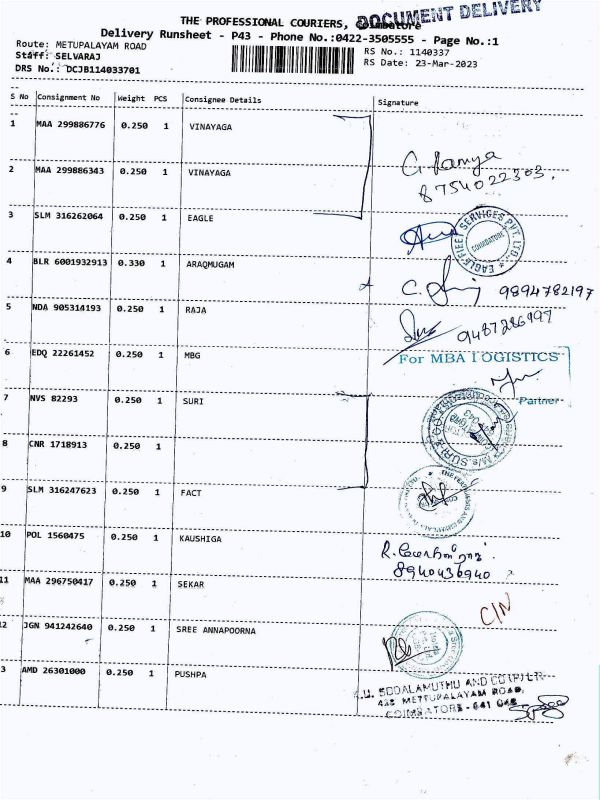 DOCUMENT DELIVERY
THE PROFESSIONAL COURIERS, Coimbatore
Delivery Runsheet - P43 - Phone No.:0422-3505555 - Page No.:1
Route: METUPALAYAM ROAD
RS No.: 1140337
Staff: SELVARAJ
RS Date: 23-Mar-2023
DRS No.: DCJB114033701
S No Consignment No Weight PCS Consignee Details Signature
1 MAA 299886776 0.250 1 VINAYAGA
2 MAA 299886343 0.250 1 VINAYAGA
8754022303.
3 SLM 316262064 0.250 1 EAGLE
EAGLE FLEET SERVICES PVT. LTD.
COIMBATORE
4 BLR 6001932913 0.330 1 ARAQMUGAM
9894782197
5 NDA 905314193 0.250 1 RAJA
9487286997
6 EDQ 22261452 0.250 1 MBG
For MBA LOGISTICS
Partner
7 NVS 82293 0.250 1 SURI
M/s. SURI & CO
8 CNR 1718913 0.250 1
9 SLM 316247623 0.250 1 FACT
10 POL 1560475 0.250 1 KAUSHIGA
8940436940
11 MAA 296750417 0.250 1 SEKAR
C/N
12 JGN 941242640 0.250 1 SREE ANNAPOORNA
3 AMD 26301000 0.250 1 PUSHPA
SODALAMUTHU AND CO
METTUPALAYAM ROAD,
COIMBATORE - 641 043